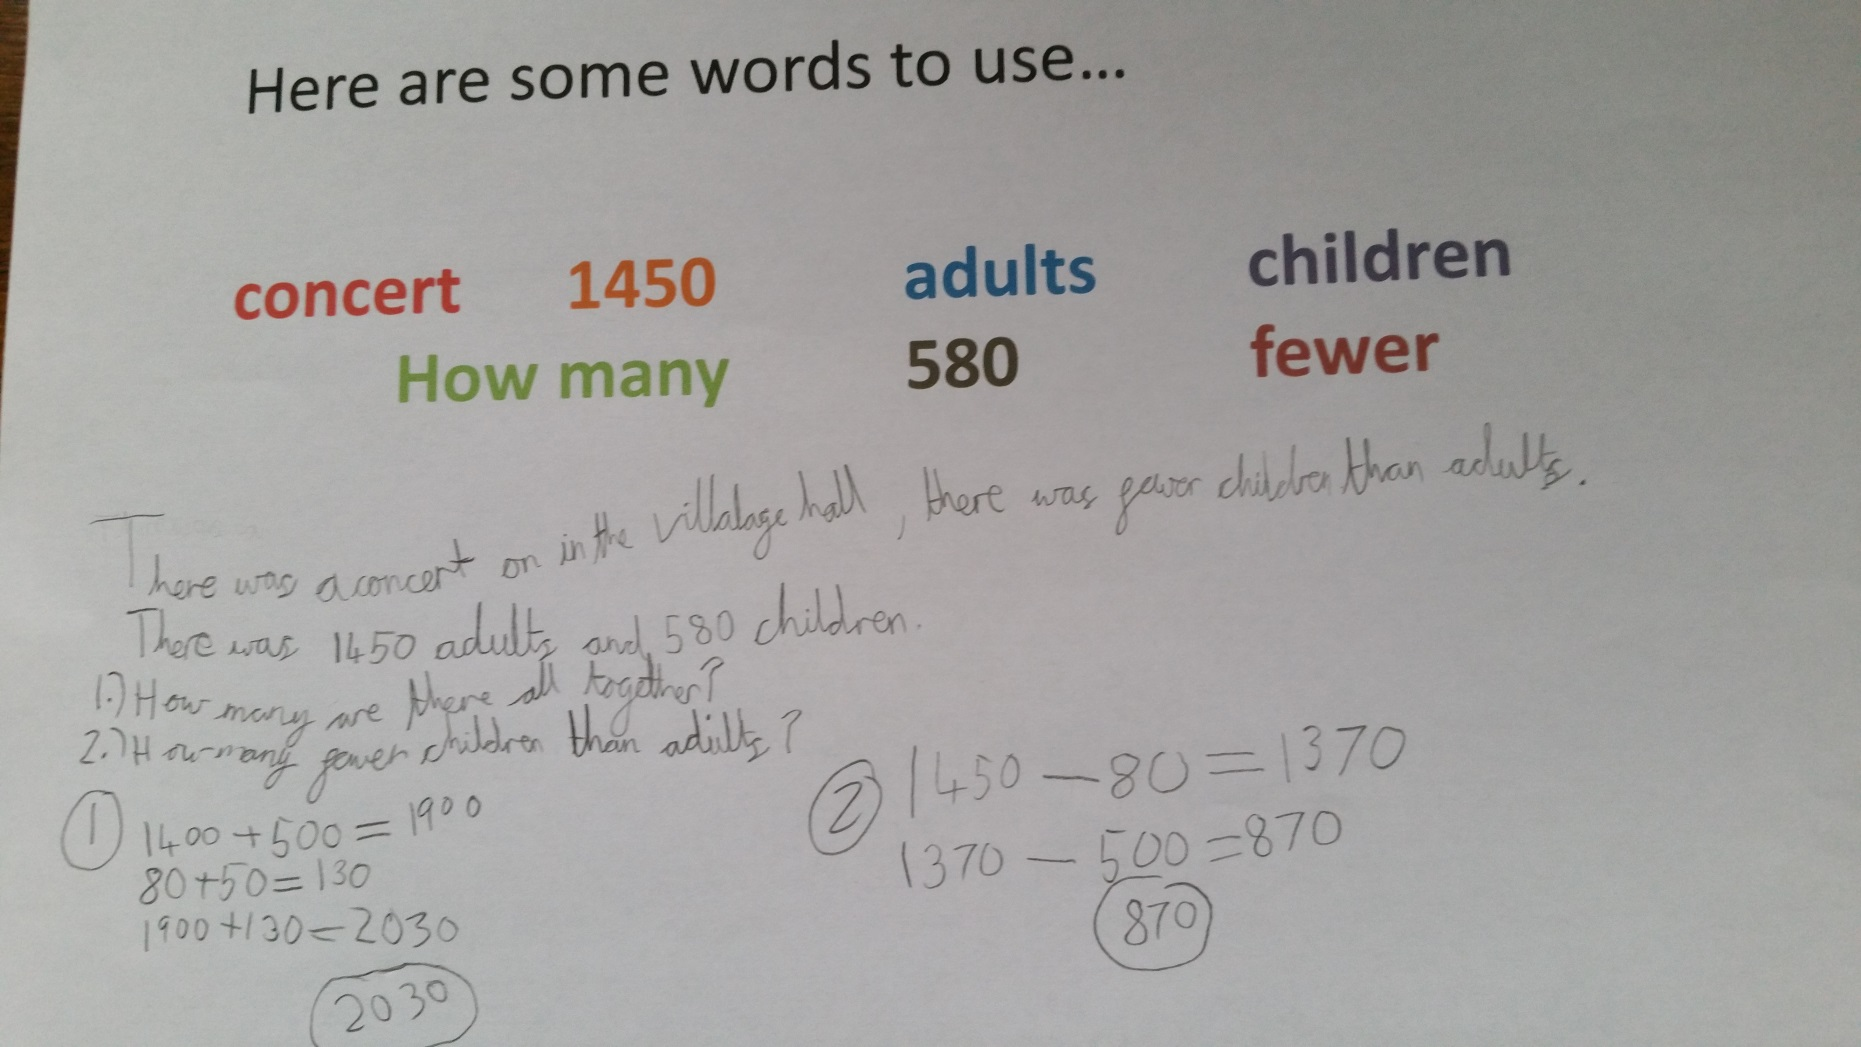 Here are some words to use...
concert 1450 adults children
How many 580 fewer
There was a concert on in the villalage hall, there was fewer children than adults.
There was 1450 adults and 580 children.
1.) How many are there all together?
2.) How many fewer children than adults?
① 1400 + 500 = 1900
80 + 50 = 130
1900 + 130 = 2030
2030
② 1450 - 80 = 1370
1370 - 500 = 870
870